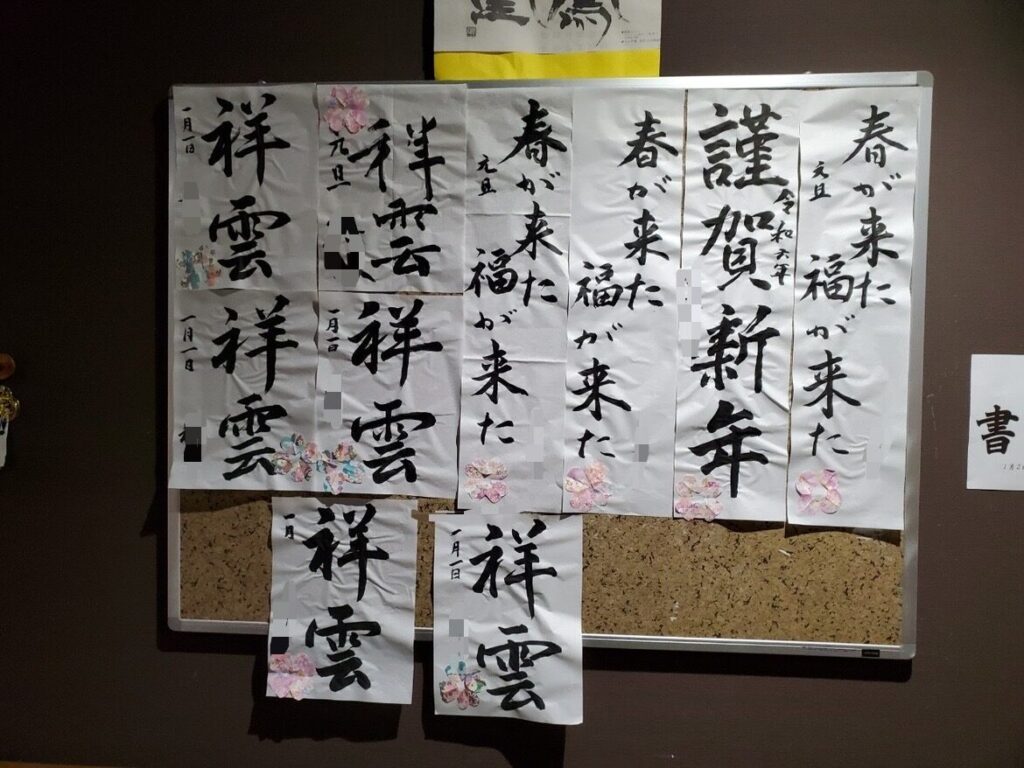 春が来た
福が来た
元旦
謹賀新年
令和六年
春が来た
福が来た
春が来た
福が来た
元旦
祥雲
元旦
祥雲
一月一日
祥雲
一月一日
祥雲
一月一日
祥雲
一月一日
祥雲
一月
書